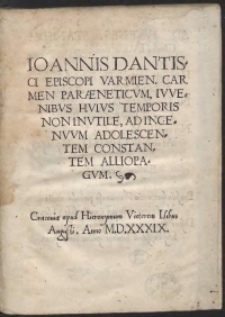 IOANNIS DANTIS,
CI EPISCOPI VARMIEN, CAR
MEN PARÆNETICVM, IVVE,
NIBVS HVIVS TEMPORIS
NON INVTILE, AD INGE,
NVVM ADOLESCEN,
TEM CONSTAN,
TEM ALLIOPA,
GVM.
Cracoviæ apud Hieronymum Vietorem Idibus
Augusti, Anno M.D.XXXIX.